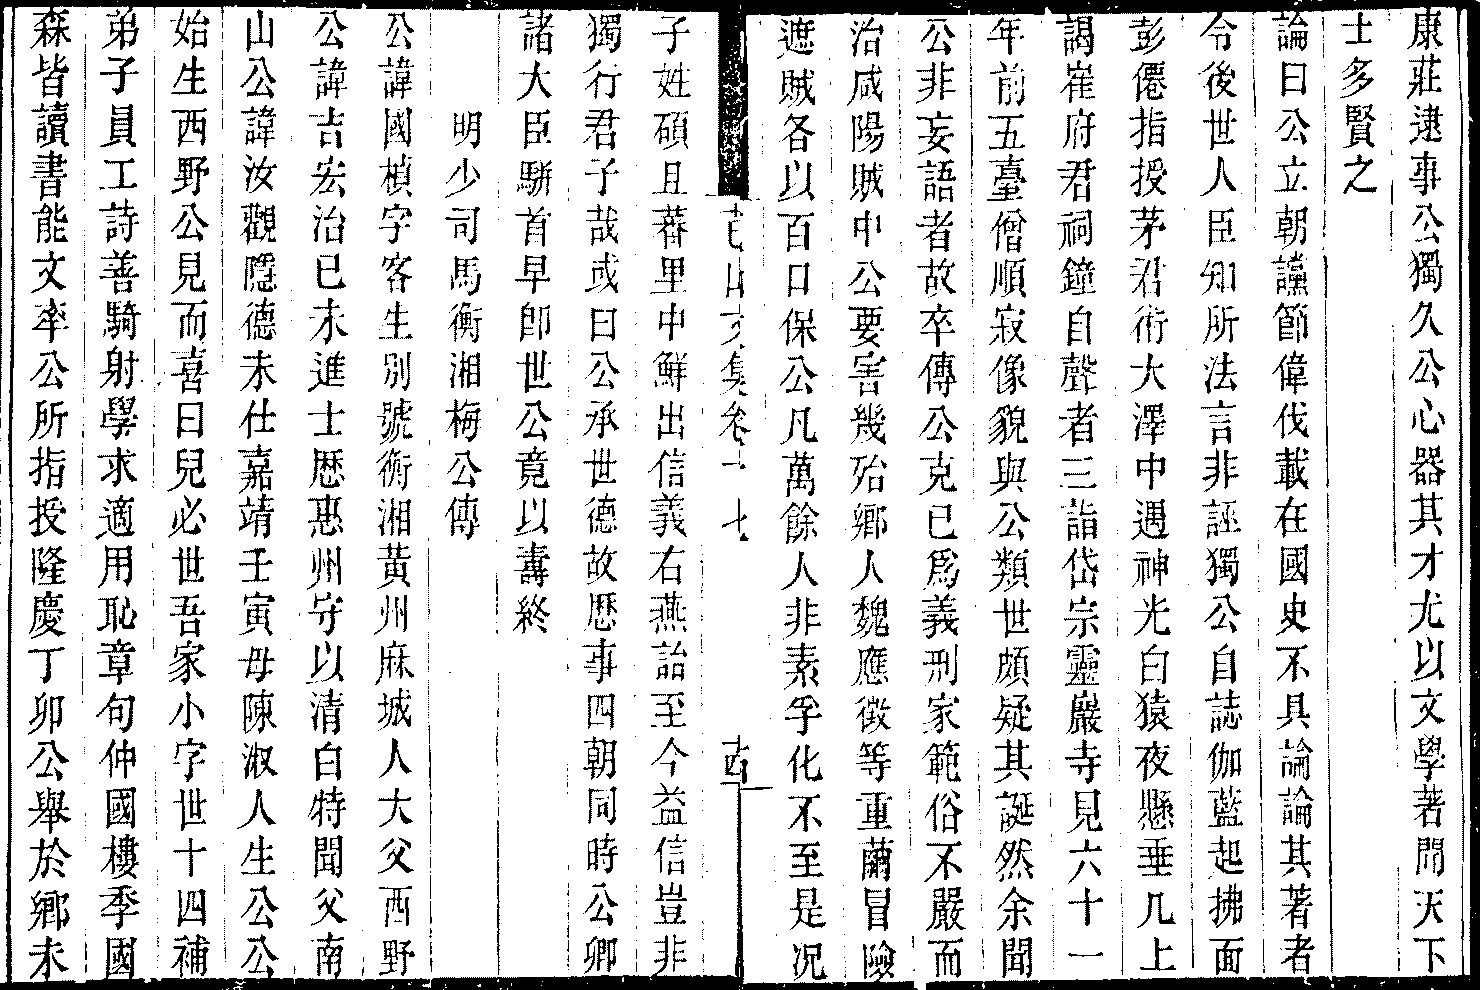 康莊逮事公獨久公心器其才尤以文學著間天下
士多賢之
論曰公立朝讜節偉伐載在國史不具論論其著者
令後世人臣知所法言非誣獨公自誌伽藍起拂面
彭僊指授茅君術大澤中遇神光白猿夜懸垂几上
謁崔府君祠鐘自聲者三詣岱宗靈巖寺見六十一
年前五臺僧順寂像貌與公類世頗疑其誕然余聞
公非妄語者故卒傳公克已爲義刑家範俗不嚴而
治咸陽賊中公要害幾殆鄉人魏應徵等重繭冒險
遮賊各以百口保公凡萬餘人非素孚化不至是况
文集卷十七
子姓碩且蕃里中鮮出信義右燕詒至今益信豈非
獨行君子哉或曰公承世德故歷事四朝同時公卿
諸大臣駢首早卽世公竟以壽終
明少司馬衡湘梅公傳
公諱國楨字客生別號衡湘黃州麻城人大父西野
公諱吉宏治已未進士歷惠州守以清白特聞父南
山公諱汝觀隱德未仕嘉靖壬寅母陳淑人生公公
始生西野公見而喜曰兒必世吾家小字世十四補
弟子員工詩善騎射學求適用恥章句仲國樓季國
森皆讀書能文率公所指授隆慶丁卯公舉於鄉未